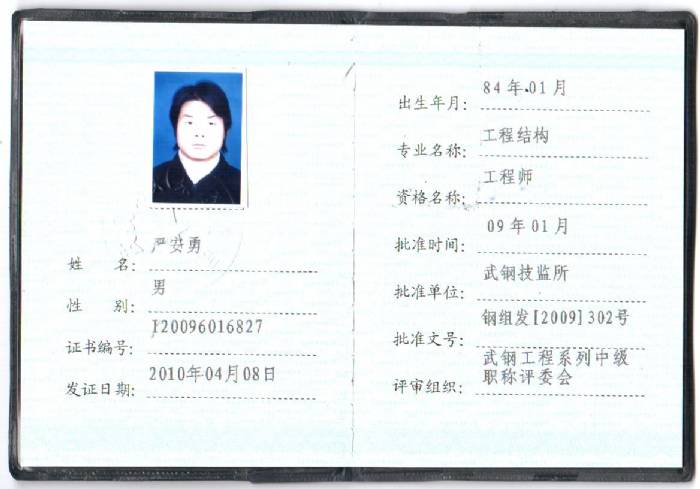 姓 名: 严安勇
性 别: 男
证书编号: I20096016827
发证日期: 2010年04月08日
出生年月: 84年.01月
专业名称: 工程结构
资格名称: 工程师
批准时间: 09年01月
批准单位: 武钢技监所
批准文号: 钢组发[2009]302号
评审组织: 武钢工程系列中级
职称评委会